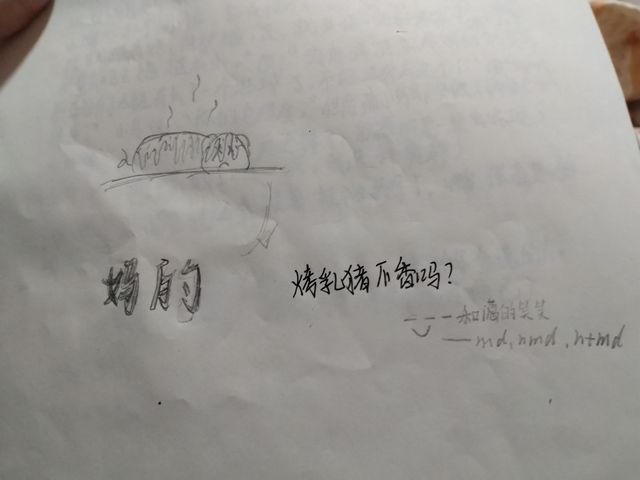 妈的
烤乳猪不香吗?
和蔼的笑笑
—md,nmd,ntmd